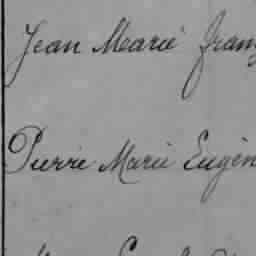 Jean Marie Fran
Pierre Marie Eugèn